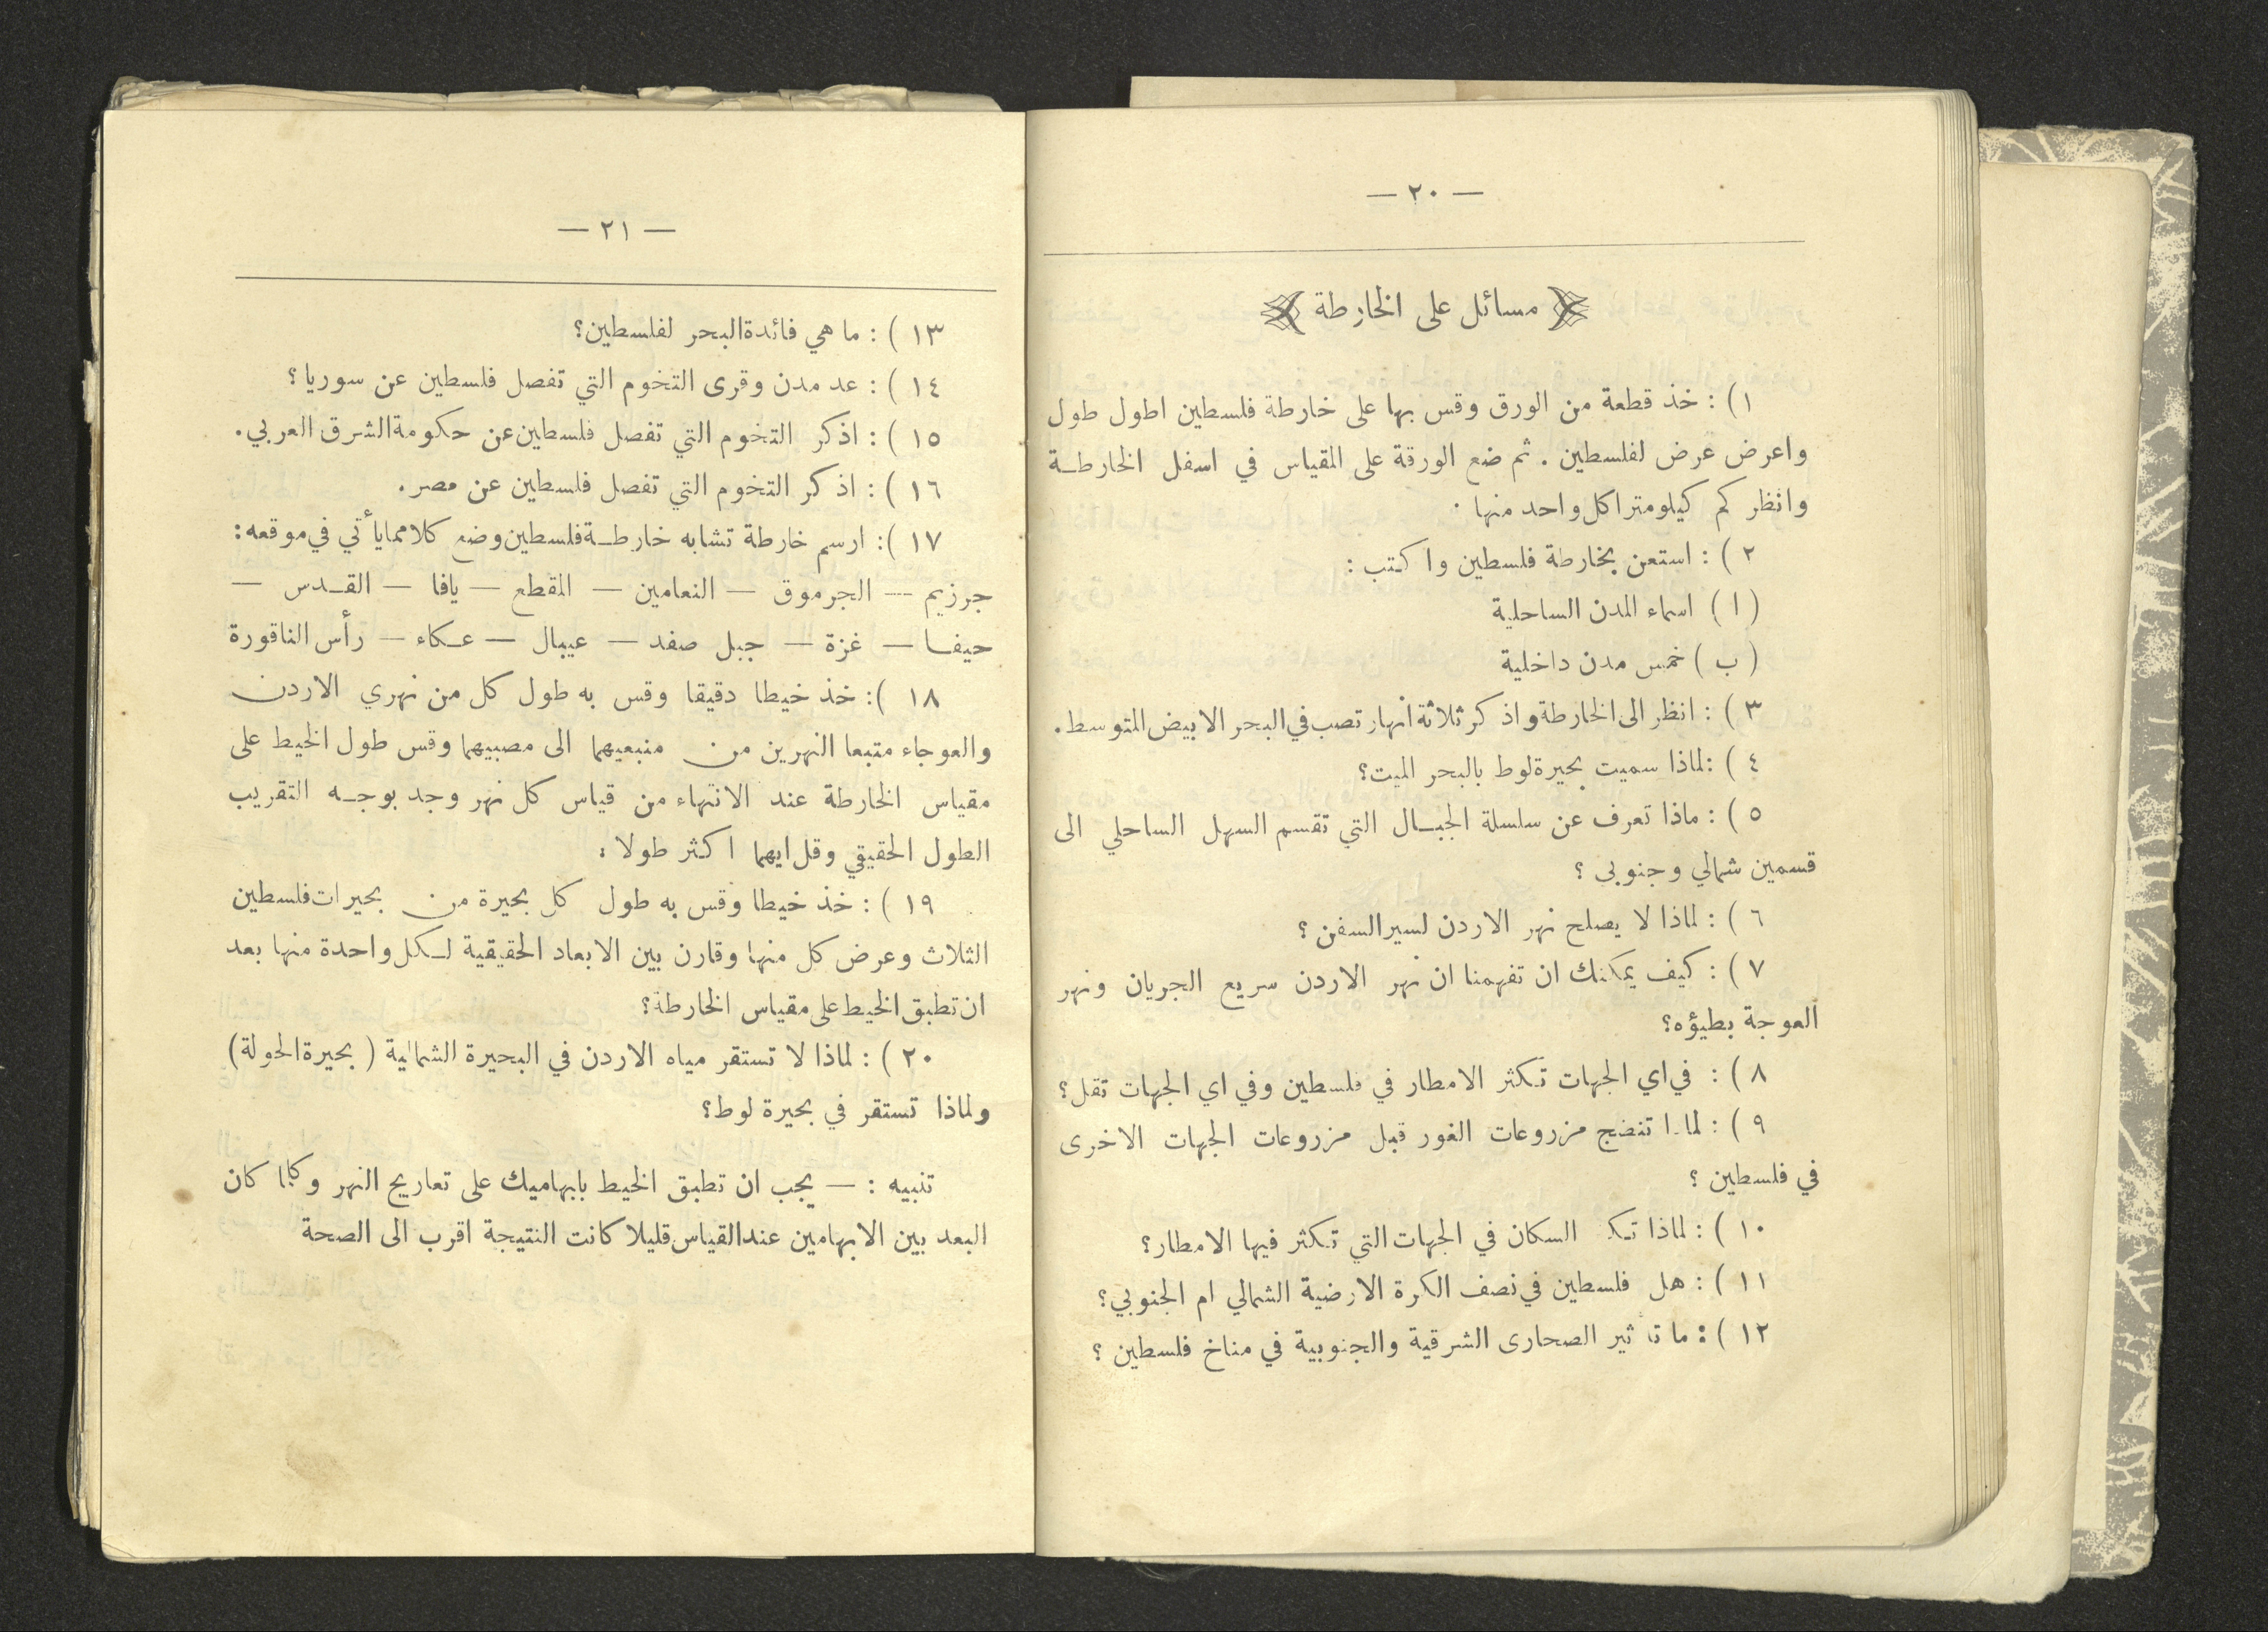 — ٢٠ —
مسائل على الخارطة
١ ) : خذ قطعة من الورق وقس بها على خارطة فلسطين اطول طول
واعرض عرض لفلسطين . ثم ضع الورقة على المقياس في اسفل الخارطة
وانظر كم كيلومترا كل واحد منها .
٢ ) : استعن بخارطة فلسطين واكتب :
( ا ) اسماء المدن الساحلية
( ب ) خمس مدن داخلية
٣ ) : انظر الى الخارطة واذكر ثلاثة انهار تصب في البحر الابيض المتوسط .
٤ ) : لماذا سميت بحيرة لوط بالبحر الميت؟
٥ ) : ماذا تعرف عن سلسلة الجبال التي تقسم السهل الساحلي الى
قسمين شمالي وجنوبي ؟
٦ ) : لماذا لا يصلح نهر الاردن لسير السفن ؟
٧ ) : كيف يمكنك ان تفهمنا ان نهر الاردن سريع الجريان ونهر
العوجة بطيؤه؟
٨ ) : في اي الجهات تكثر الامطار في فلسطين وفي اي الجهات تقل؟
٩ ) : لماذا تنضج مزروعات الغور قبل مزروعات الجهات الاخرى
في فلسطين ؟
١٠ ) : لماذا السكان في الجهات التي تكثر فيها الامطار؟
١١ ) : هل فلسطين في نصف الكرة الارضية الشمالي ام الجنوبي؟
١٢ ) : ما تأثير الصحارى الشرقية والجنوبية في مناخ فلسطين ؟
— ٢١ —
١٣ ) : ما هي فائدة البحر لفلسطين؟
١٤ ) : عد مدن وقرى التخوم التي تفصل فلسطين عن سوريا؟
١٥ ) : اذكر التخوم التي تفصل فلسطين عن حكومة الشرق العربي .
١٦ ) : اذكر التخوم التي تفصل فلسطين عن مصر .
١٧ ) : ارسم خارطة تشابه خارطة فلسطين وضع كلا مما يأتي في موقعه :
جرزيم — الجرموق — النعامين — المقطع — يافا — القدس —
حيفا — غزة — جبل صفد — عيبال — عكاء — رأس الناقورة
١٨ ) : خذ خيطا دقيقا وقس به طول كل من نهري الاردن
والعوجاء متبعا النهرين من منبعيهما الى مصبيهما وقس طول الخيط على
مقياس الخارطة عند الانتهاء من قياس كل نهر وجد بوجه التقريب
الطول الحقيقي وقل ايهما اكثر طولا :
١٩ ) : خذ خيطا وقس به طول كل بحيرة من بحيرات فلسطين
الثلاث وعرض كل منها وقارن بين الابعاد الحقيقية لكل واحدة منها بعد
ان تطبق الخيط على مقياس الخارطة؟
٢٠ ) : لماذا لا تستقر مياه الاردن في البحيرة الشمالية ( بحيرة الحولة )
ولماذا تستقر في بحيرة لوط؟
تنبيه : — يجب ان تطبق الخيط بابهاميك على تعاريج النهر وكلما كان
البعد بين الابهامين عند القياس قليلا كانت النتيجة اقرب الى الصحة